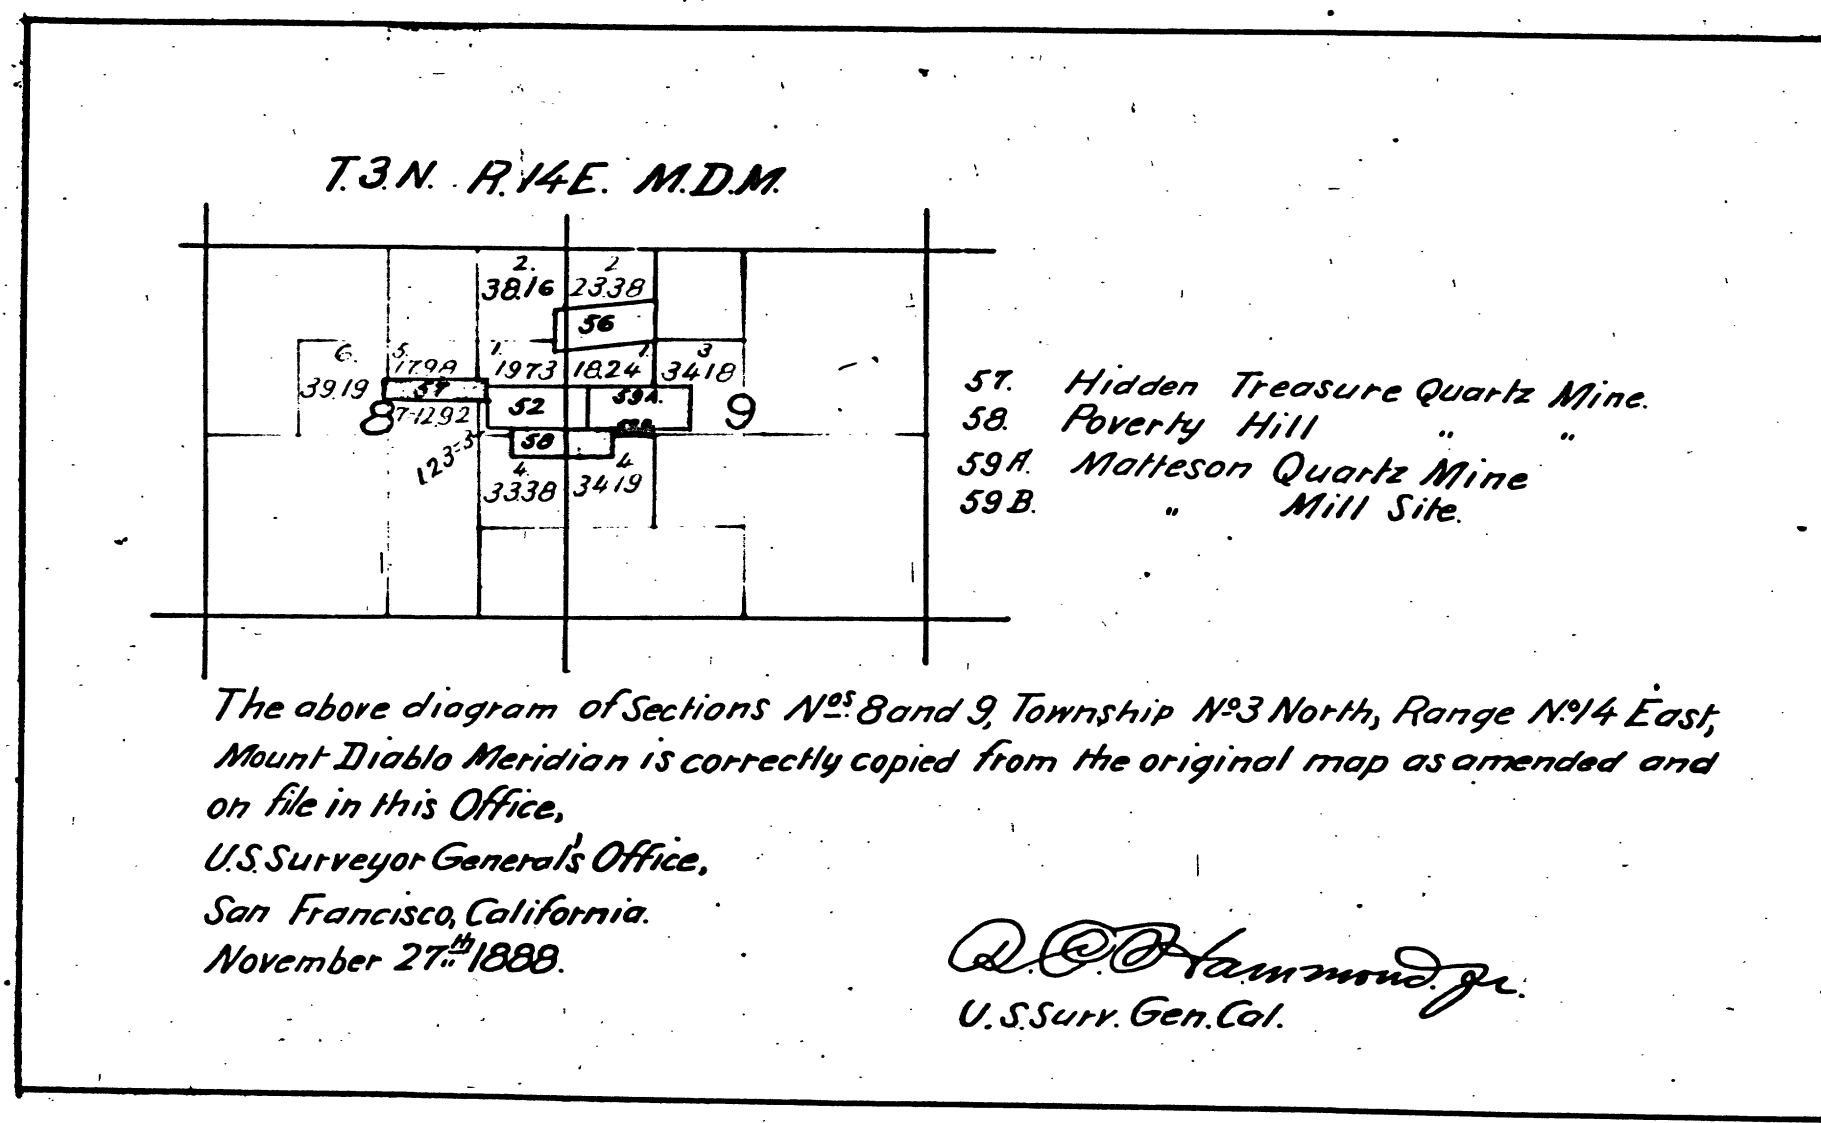 T.3.N. R.14E. M.D.M.
2. 2
38.16 23.38
56
6. 5. 1. 1. 3
39.19 17.98 19.73 18.24 34.18
57 52 59A.
8 7-12.92 9
58
123-3
4. 4
33.38 34.19
57. Hidden Treasure Quartz Mine.
58. Poverty Hill " "
59A. Matteson Quartz Mine
59B. " Mill Site.
The above diagram of Sections Nos. 8 and 9, Township No 3 North, Range No. 14 East,
Mount Diablo Meridian is correctly copied from the original map as amended and
on file in this Office,
U.S. Surveyor General's Office,
San Francisco, California.
November 27th 1888.
Hammond. Jr.
U.S. Surv. Gen. Cal.